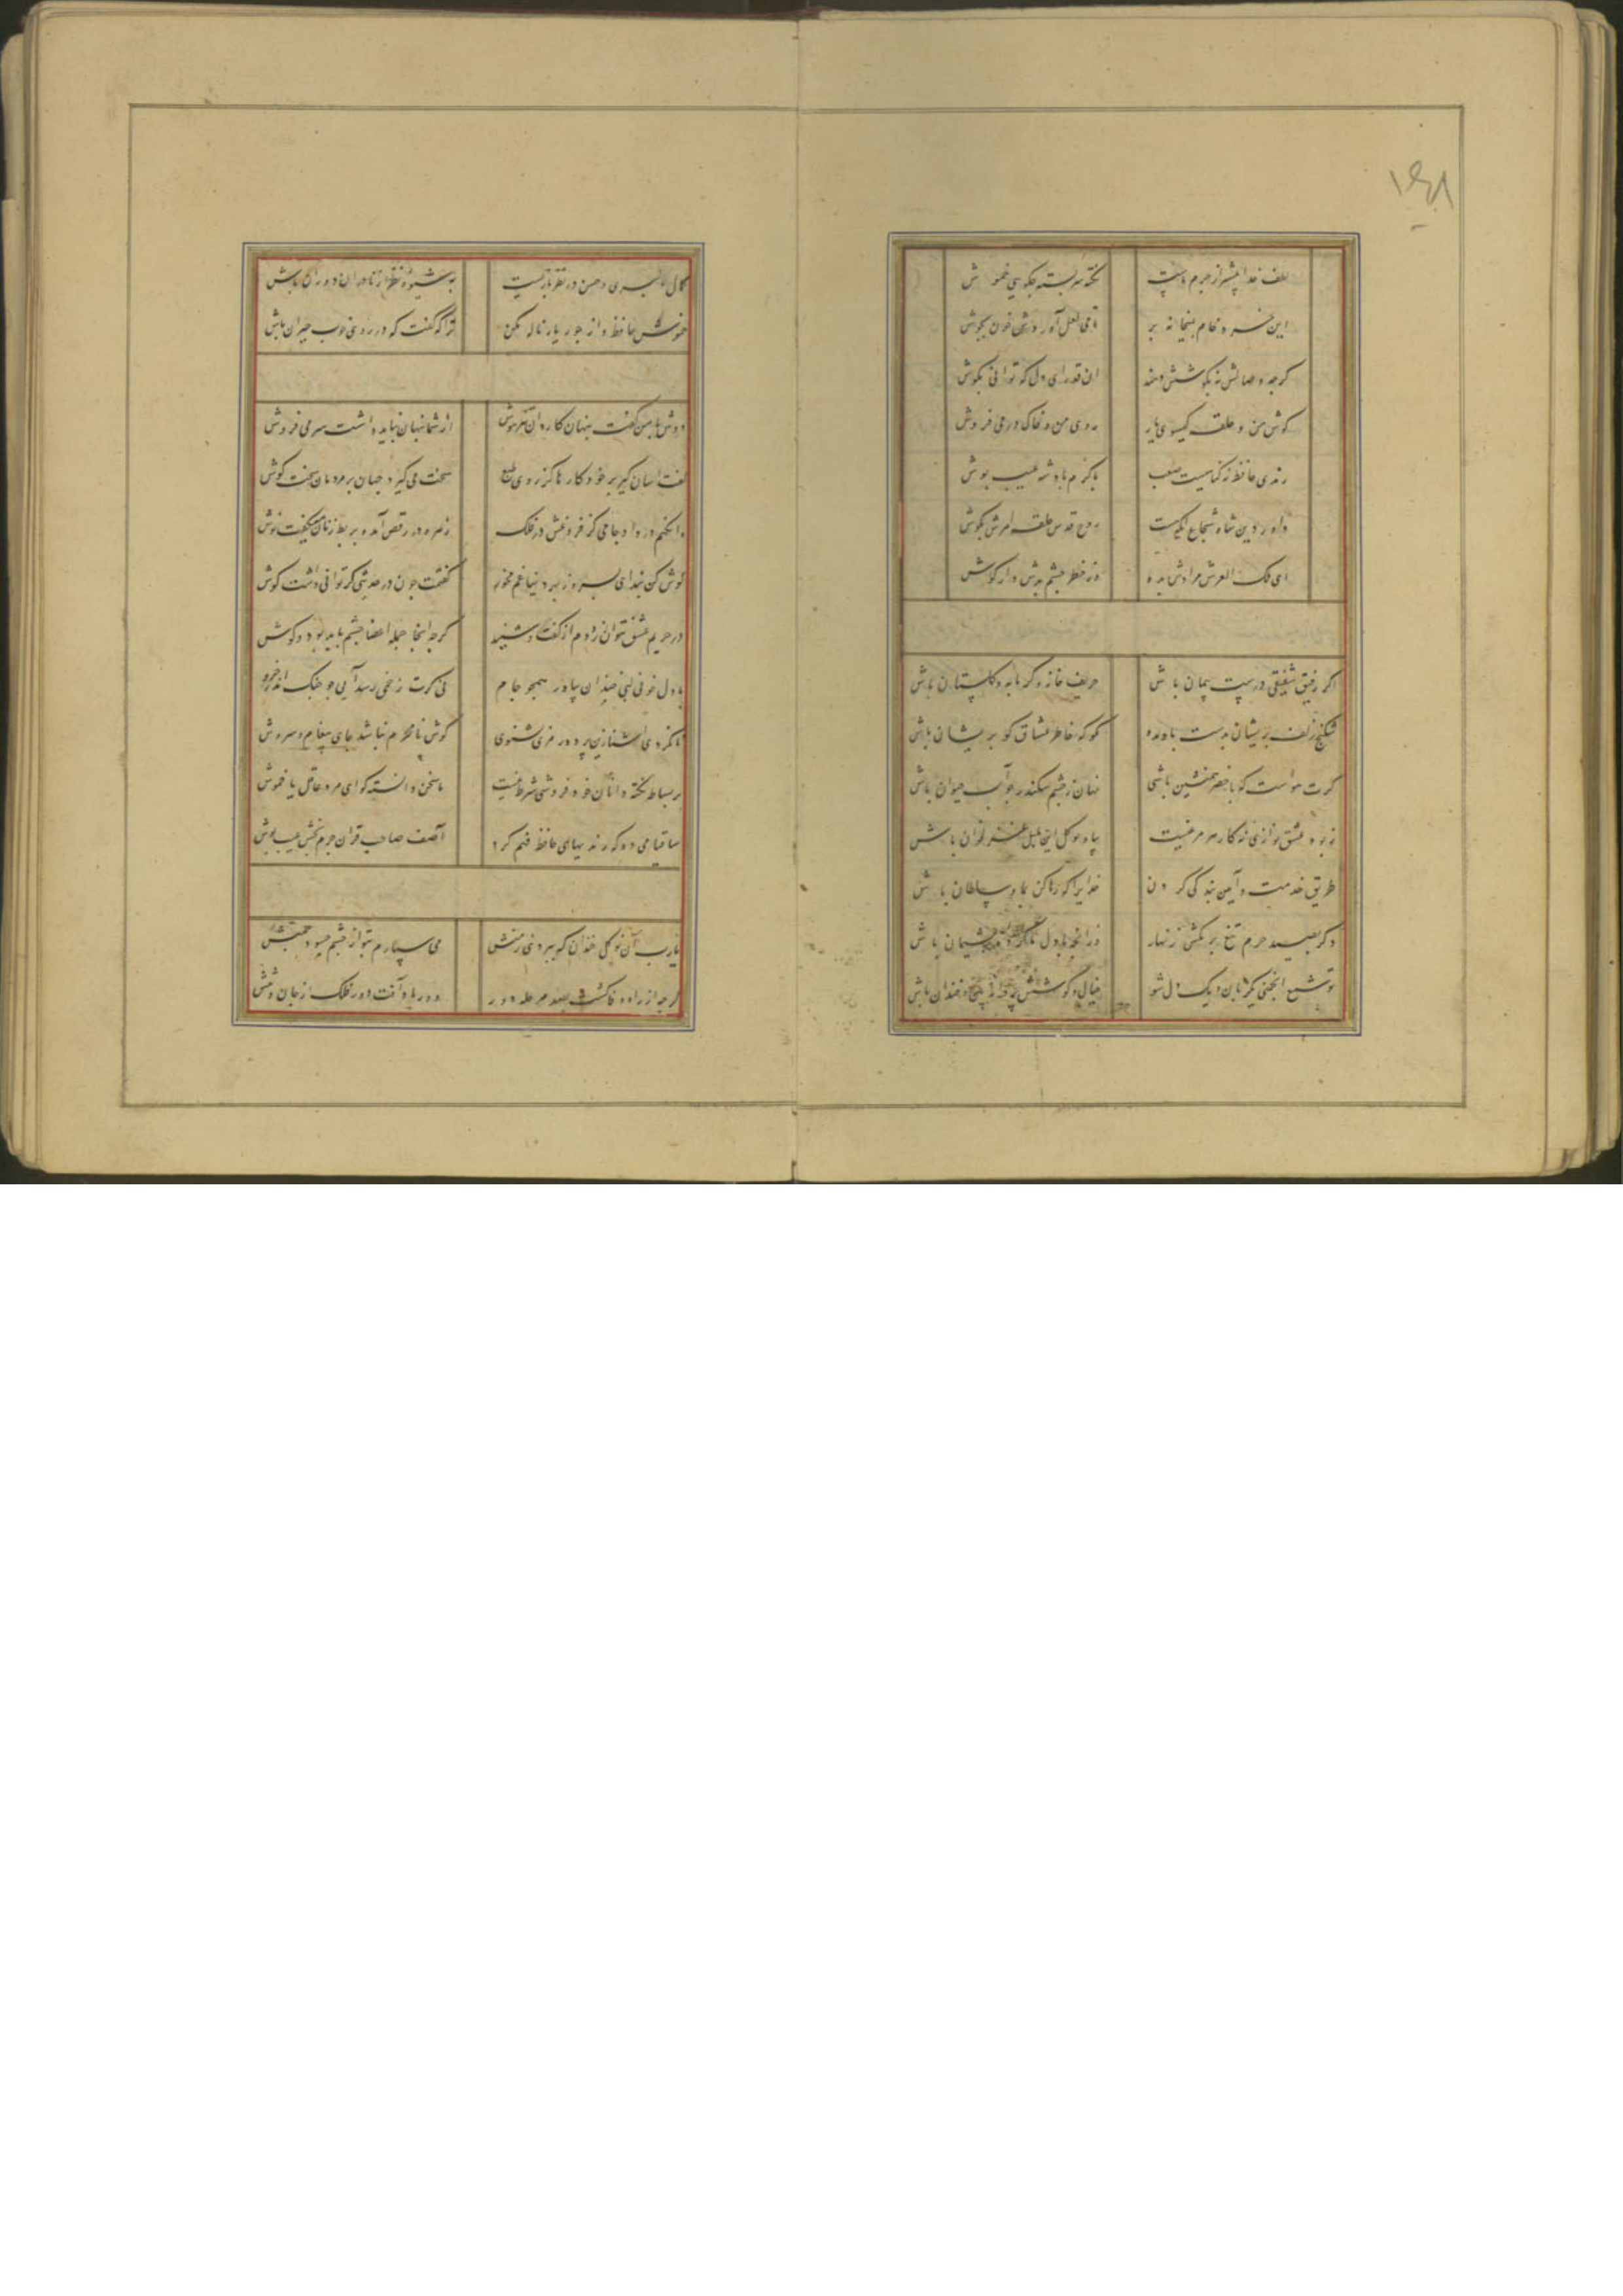 ۱۴۸
لطف خدا پیشتر از جرم ماست نکته سربسته چکویی خموش
این خرد خام بمیخانه بر تا می لعل آوردش خون بجوش
کرچه وصالش نه بکوشش دهند ان قدر ای دل که توانی بکوش
کوش من و حلقه کیسوی یار روی من و خاک در می فروش
رندی حافظ نه کناهیست صعب با کرم پادشه عیب پوش
داور دین شاه شجاع انکه روح قدس حلقه امرش بکوش
ای ملک العرش مرادش بده وز خطر چشم بدش دار کوش
اکر رفیق شفیقی درست پیمان باش حریف خانه و کرمابه و کلستان باش
شکنج زلف پریشان بدست باد مده مکو که خاطر عشاق کو پریشان باش
کرت هواست که با خضر همنشین باشی نهان ز چشم سکندر چو آب حیوان باش
زبور عشق نوازی نه کار هر مرغیست بیا و نوکل این بلبل غزلخوان باش
طریق خدمت و آیین بندکی کردن خدایرا که رها کن بما و سلطان باش
دکر بصید حرم تیغ بر مکش زنهار وز انچه با دل ما کرده پشیمان باش
تو شمع انجمنی یکزبان و یک دل شو خیال و کوشش پروانه بین و خندان باش
کمال دلبری و حسن در نظر بازیست به شیوه نظر از نادران دوران باش
خموش حافظ و از جور یار ناله مکن ترا که کفت که در روی خوب حیران باش
دوش با من کفت پنهان کاردان تیزهوش از شما پنهان نباید داشت سر می فروش
کفت اسان کیر بر خود کارها کز روی طبع سخت می کیرد جهان بر مردمان سخت کوش
وانکهم در داد جامی کز فروغش در فلک زهره در رقص آمد و بربط زنان میکفت نوش
کوش کن پند ای پسر وز بهر دنیا غم مخور کفتمت چون در حدیثی کر توانی داشت کوش
در حریم عشق نتوان زد دم از کفت و شنید کرچه اینجا جمله اعضا چشم باید بود و کوش
با دل خونی لبی خندان بیاور همچو جام نی کرت زخمی رسد آیی چو چنک اندر خروش
تا نکردی آشنا زین پرده رمزی نشنوی کوش نامحرم نباشد جای پیغام سروش
بر بساط نکته دانان خود فروشی شرط نیست یا سخن دانسته کو ای مرد عاقل یا خموش
ساقیا می ده که رندیهای حافظ فهم کرد آصف صاحب قران جرم بخش عیب پوش
یارب آن نوکل خندان که سپردی بمنش می سپارم بتو از چشم حسود چمنش
کرچه از راه وفا کشت بصد مرحله دور دور باد آفت دور فلک از جان و تنش